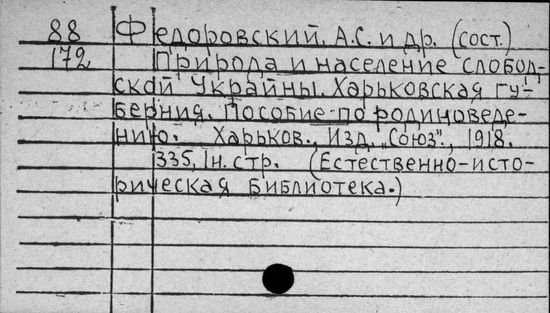 88 Федоровский, А.С. и др. (сост.)
172 Природа и население слобод-
ской Украйны. Харьковская гу-
берния. Пособие по родиноведе-
нию. Харьков., Изд. „Союз"., 1918.
335, 1н. стр. (Естественно-исто-
рическая библиотека.)